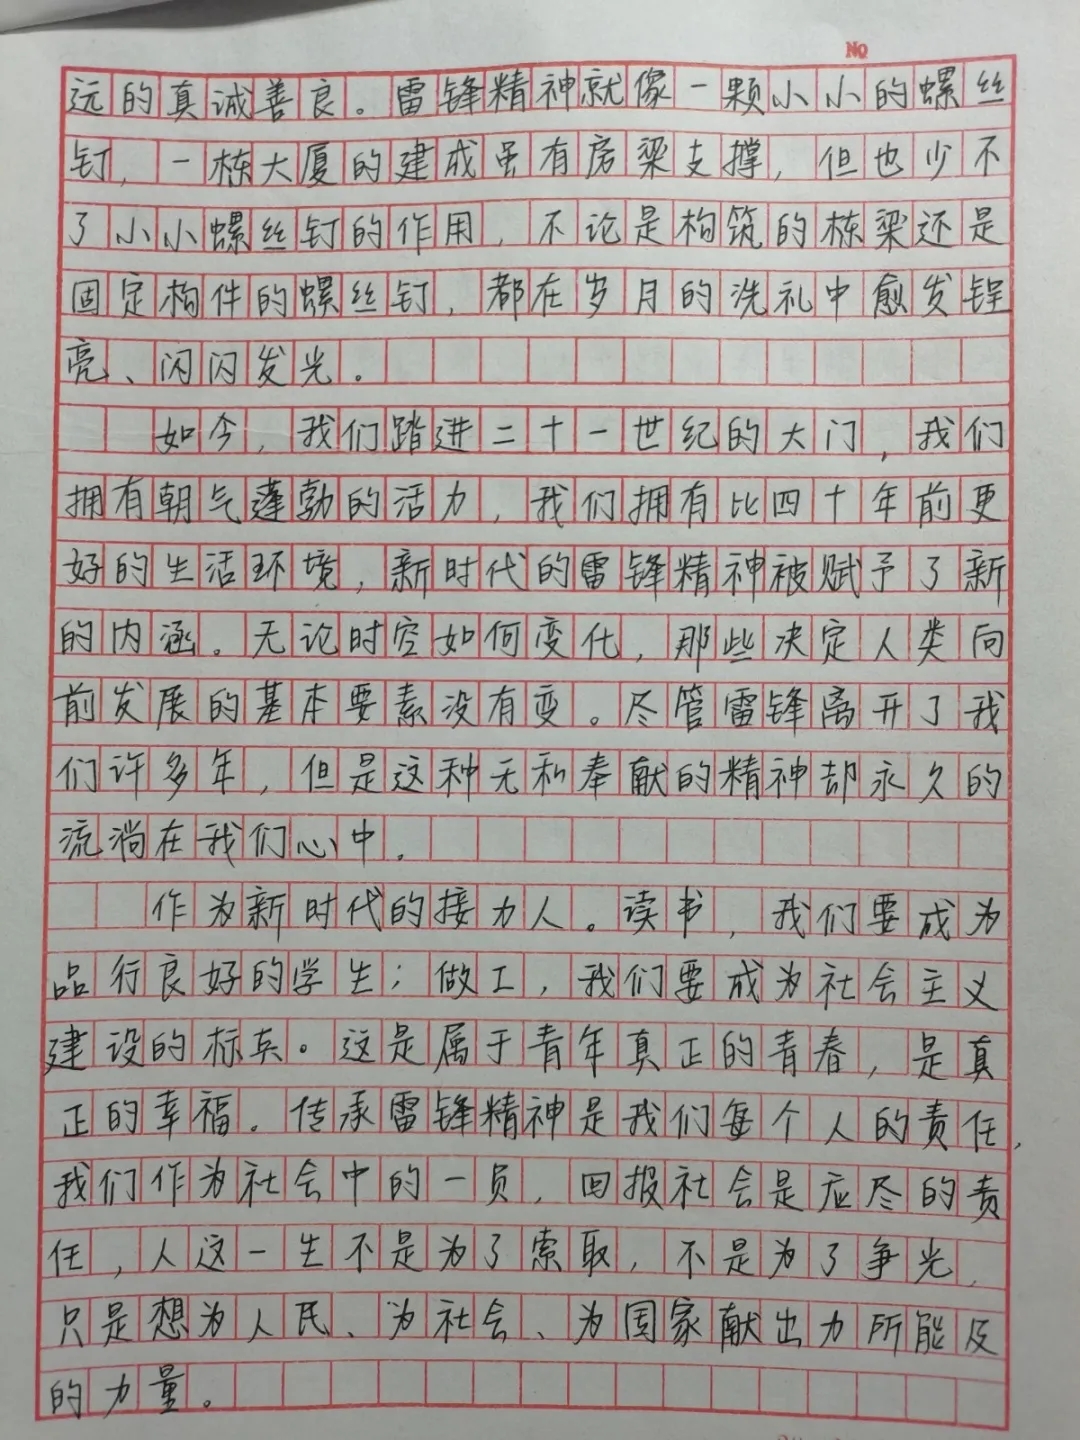 NO
远的真诚善良。雷锋精神就像一颗小小的螺丝
钉，一栋大厦的建成虽有房梁支撑，但也少不
了小小螺丝钉的作用，不论是构筑的栋梁还是
固定构件的螺丝钉，都在岁月的洗礼中愈发锃
亮、闪闪发光。
如今，我们踏进二十一世纪的大门，我们
拥有朝气蓬勃的活力，我们拥有比四十年前更
好的生活环境，新时代的雷锋精神被赋予了新
的内涵。无论时空如何变化，那些决定人类向
前发展的基本要素没有变。尽管雷锋离开了我
们许多年，但是这种无私奉献的精神却永久的
流淌在我们心中。
作为新时代的接力人。读书，我们要成为
品行良好的学生；做工，我们要成为社会主义
建设的标兵。这是属于青年真正的青春，是真
正的幸福。传承雷锋精神是我们每个人的责任，
我们作为社会中的一员，回报社会是应尽的责
任，人这一生不是为了索取，不是为了争光，
只是想为人民、为社会、为国家献出力所能及
的力量。